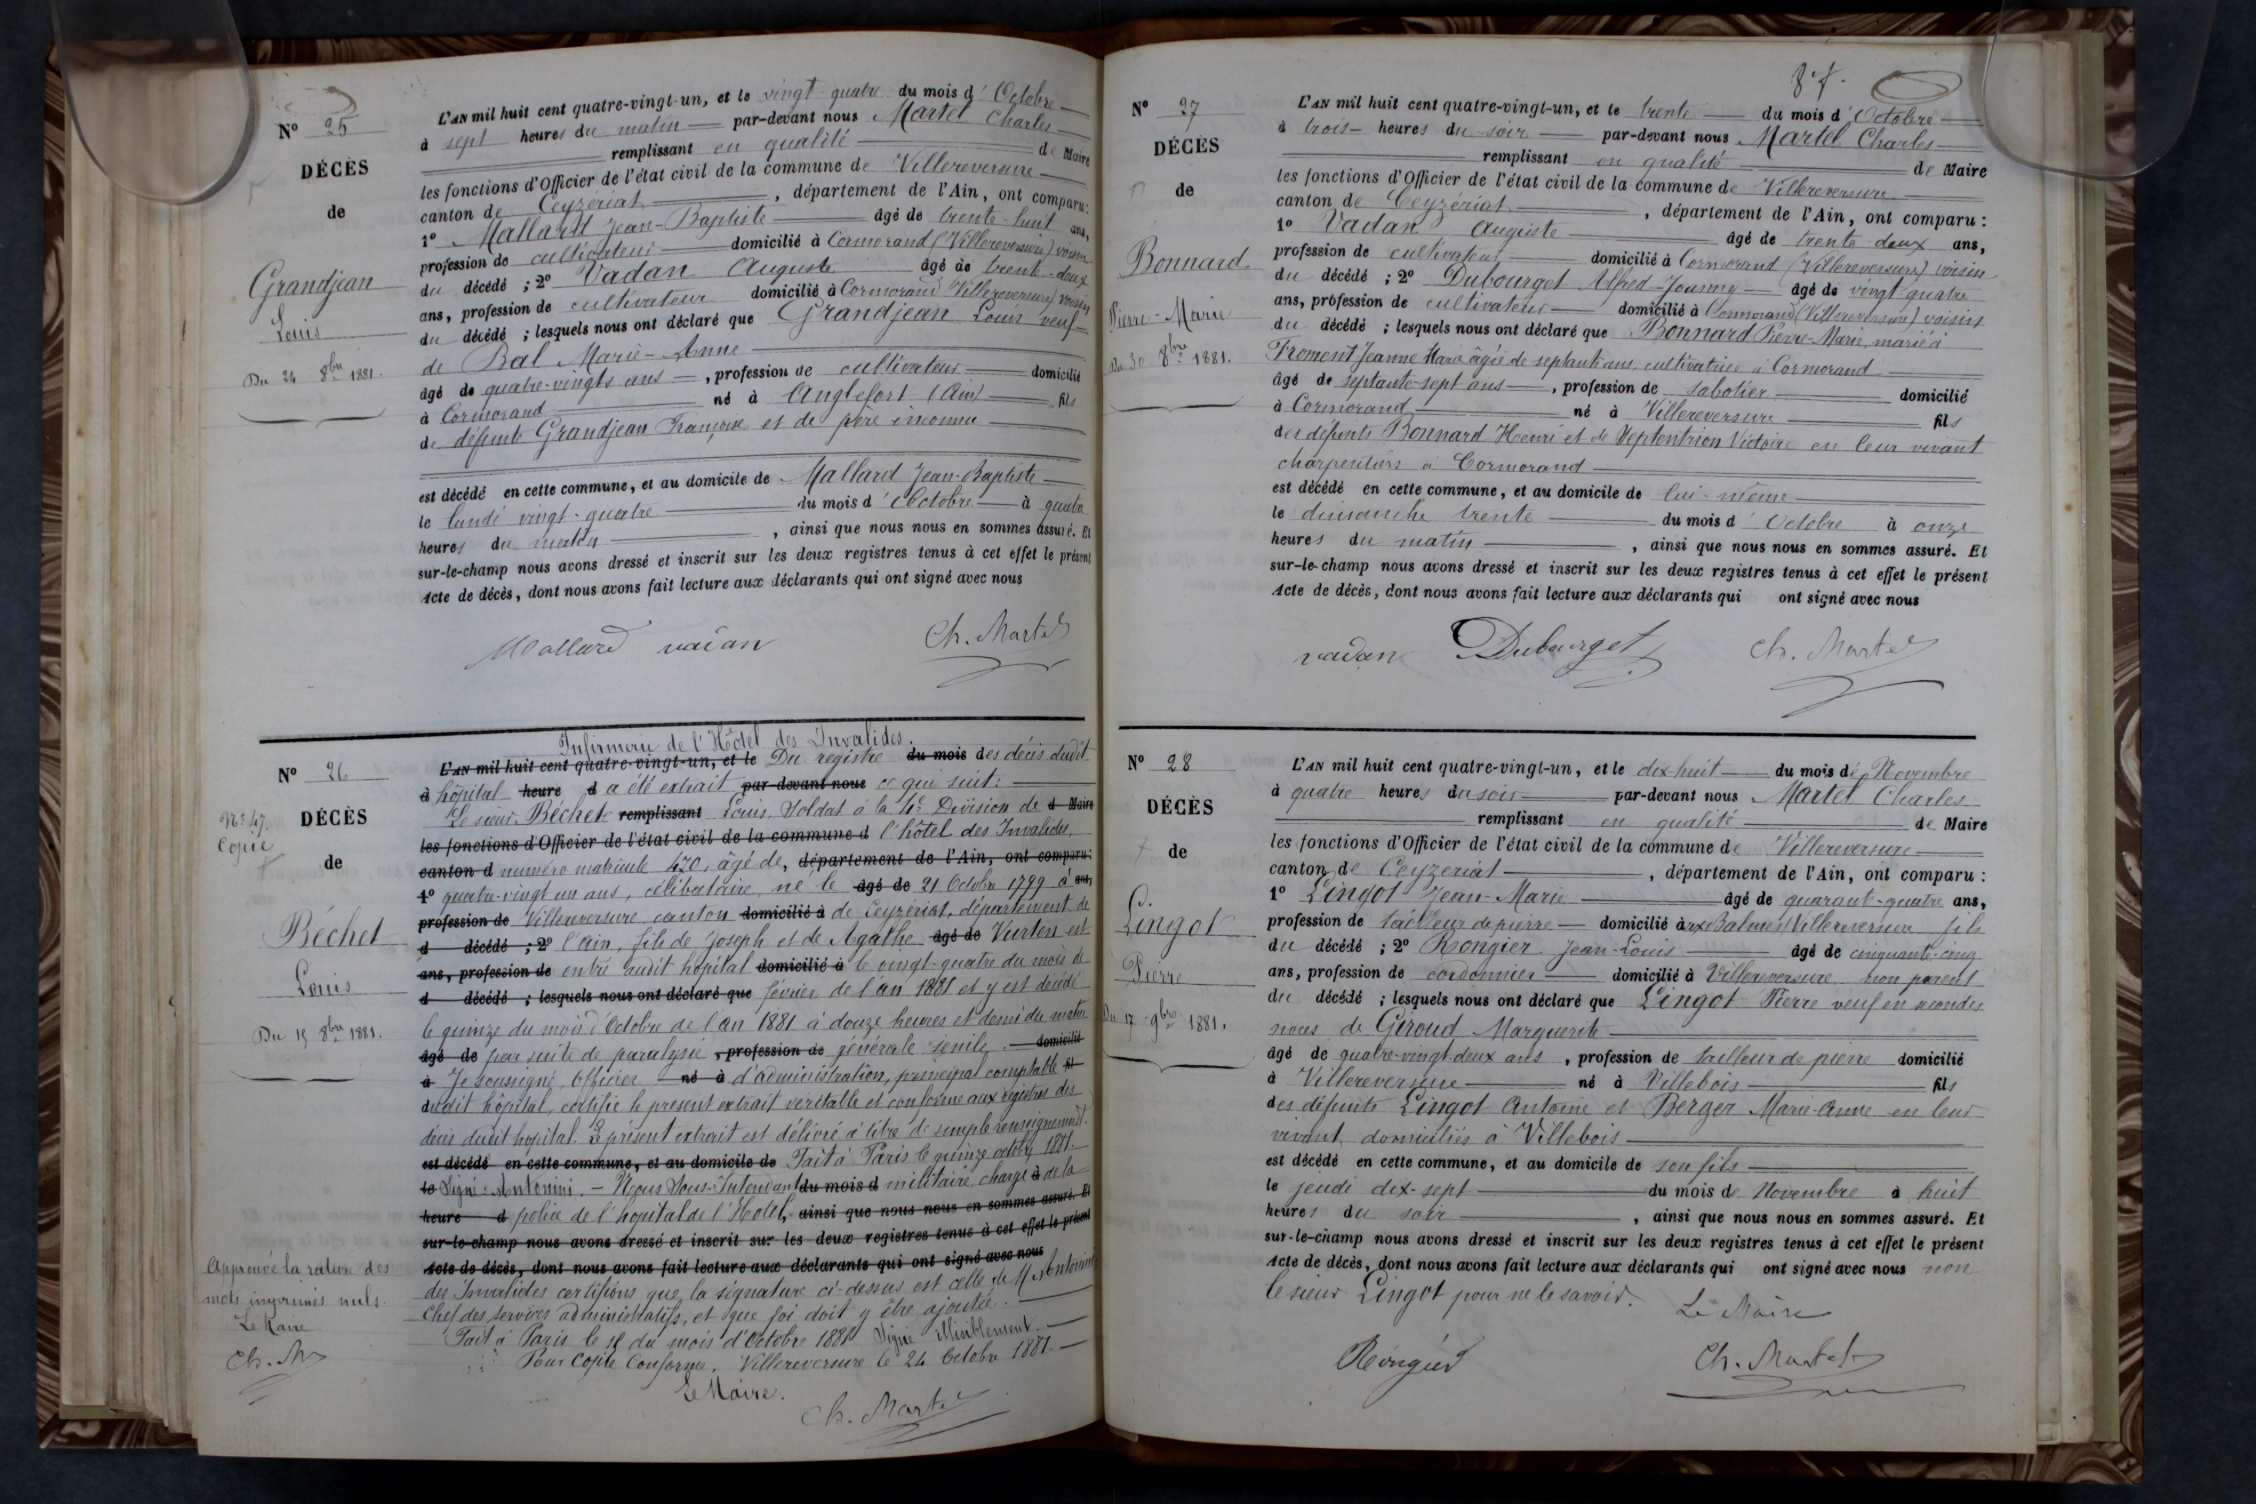 Nº 25
DÉCÈS
de
Grandjean
Louis
Du 24 8bre 1881.
L'AN mil huit cent quatre-vingt-un, et le vingt-quatre du mois d'Octobre
à sept heures du matin par-devant nous Martel Charles
remplissant en qualité de Maire
les fonctions d'Officier de l'état civil de la commune de Villereversure
canton de Ceyzériat, département de l'Ain, ont comparu:
1º Mallard Jean-Baptiste âgé de trente-huit ans,
profession de cultivateur domicilié à Cormorand (Villereversure) voisin
du décédé ; 2º Vadan Auguste âgé de trente-deux
ans, profession de cultivateur domicilié à Cormorand (Villereversure) voisin
du décédé ; lesquels nous ont déclaré que Grandjean Louis veuf
de Bal Marie-Anne
âgé de quatre-vingts ans, profession de cultivateur domicilié
à Cormorand né à Anglefort (Ain) fils
de défunte Grandjean Françoise et de père inconnu
est décédé en cette commune, et au domicile de Mallard Jean-Baptiste
le lundi vingt-quatre du mois d'Octobre à quatre
heures du matin, ainsi que nous nous en sommes assuré. Et
sur-le-champ nous avons dressé et inscrit sur les deux registres tenus à cet effet le présent
Acte de décès, dont nous avons fait lecture aux déclarants qui ont signé avec nous
Mallard vadan Ch. Martel
Nº 26
Nº 47.
Copie
DÉCÈS
de
Béchet
Louis
Du 15 8bre 1881.
Approuvé la rature des
mots imprimés nuls.
Le Maire
Ch. M
Infirmerie de l'Hôtel des Invalides.
L'AN mil huit cent quatre-vingt-un, et le Du registre du mois des décès dudit
à hôpital heure d a été extrait par-devant nous ce qui suit:
Le sieur Béchet remplissant Louis, Soldat à la 4e Division de d Maire
les fonctions d'Officier de l'état civil de la commune d l'hôtel des Invalides,
canton d numéro matricule 470, âgé de, département de l'Ain, ont comparu:
1º quatre-vingt un ans, célibataire, né le âgé de 21 Octobre 1799 à ans,
profession de Villereversure canton domicilié à de Ceyzériat, département de
d décédé ; 2º l'Ain, fils de Joseph et de Agathe âgé de Vurten est
ans, profession de entré audit hôpital domicilié à le vingt-quatre du mois de
d décédé ; lesquels nous ont déclaré que février de l'an 1881 et y est décédé
le quinze du mois d'Octobre de l'an 1881 à douze heures et demi du matin
âgé de par suite de paralysie, profession de générale senile. domicilié
à Je soussigné, Officier né à d'administration, principal comptable fil
dudit hôpital, certifie le présent extrait véritable et conforme aux registres des
décès dudit hôpital. Le présent extrait est délivré à titre de simple renseignement.
est décédé en cette commune, et au domicile de Fait à Paris le quinze octobre 1881.
le Signé: Antonini. — Nous Sous-Intendant du mois d militaire chargé à de la
heure d police de l'hôpital de l'Hôtel, ainsi que nous nous en sommes assuré. Et
sur-le-champ nous avons dressé et inscrit sur les deux registres tenus à cet effet le présent
Acte de décès, dont nous avons fait lecture aux déclarants qui ont signé avec nous
des Invalides certifions que la signature ci-dessus est celle de M. Antonini
Chef des services administratifs, et que foi doit y être ajoutée.
Fait à Paris le 15 du mois d'Octobre 1881 Signé Illisiblement.
Pour Copie Conforme. Villereversure le 24 Octobre 1881.
Le Maire.
Ch. Martel
Nº 27
DÉCÈS
de
Bonnard
Pierre-Marie
Du 30 8bre 1881.
L'AN mil huit cent quatre-vingt-un, et le trente du mois d'Octobre
à trois heures du soir par-devant nous Martel Charles
remplissant en qualité de Maire
les fonctions d'Officier de l'état civil de la commune de Villereversure
canton de Ceyzériat, département de l'Ain, ont comparu :
1º Vadan Auguste âgé de trente-deux ans,
profession de cultivateur domicilié à Cormorand (Villereversure) voisin
du décédé ; 2º Dubourget Alfred-Jousmy âgé de vingt quatre
ans, profession de cultivateur domicilié à Cormorand (Villereversure) voisin
du décédé ; lesquels nous ont déclaré que Bonnard Pierre-Marie, marié à
Froment Jeanne Marie âgée de septante ans, cultivatrice à Cormorand
âgé de septante-sept ans, profession de sabotier domicilié
à Cormorand né à Villereversure fils
des défunts Bonnard Henri et de Septentrion Victoire en leur vivant
charpentiers à Cormorand
est décédé en cette commune, et au domicile de lui-même
le dimanche trente du mois d'Octobre à onze
heures du matin, ainsi que nous nous en sommes assuré. Et
sur-le-champ nous avons dressé et inscrit sur les deux registres tenus à cet effet le présent
Acte de décès, dont nous avons fait lecture aux déclarants qui ont signé avec nous
vadan Dubourget Ch. Martel
Nº 28
DÉCÈS
de
Lingot
Pierre
Du 17 9bre 1881.
L'AN mil huit cent quatre-vingt-un, et le dix-huit du mois de Novembre
à quatre heures du soir par-devant nous Martel Charles
remplissant en qualité de Maire
les fonctions d'Officier de l'état civil de la commune de Villereversure
canton de Ceyzériat, département de l'Ain, ont comparu :
1º Lingot Jean-Marie âgé de quarante-quatre ans,
profession de tailleur de pierre domicilié aux Balmes (Villereversure) fils
du décédé ; 2º Rongier Jean-Louis âgé de cinquante-cinq
ans, profession de cordonnier domicilié à Villereversure non parent
du décédé ; lesquels nous ont déclaré que Lingot Pierre veuf en secondes
noces de Giroud Marguerite
âgé de quatre-vingt-deux ans, profession de tailleur de pierre domicilié
à Villereversure né à Villebois fils
des défunts Lingot Antoine et Berger Marie-Anne en leur
vivant domiciliés à Villebois
est décédé en cette commune, et au domicile de son fils
le jeudi dix-sept du mois de Novembre à huit
heures du soir, ainsi que nous nous en sommes assuré. Et
sur-le-champ nous avons dressé et inscrit sur les deux registres tenus à cet effet le présent
Acte de décès, dont nous avons fait lecture aux déclarants qui ont signé avec nous non
le sieur Lingot pour ne le savoir. Le Maire
Rongier Ch. Martel